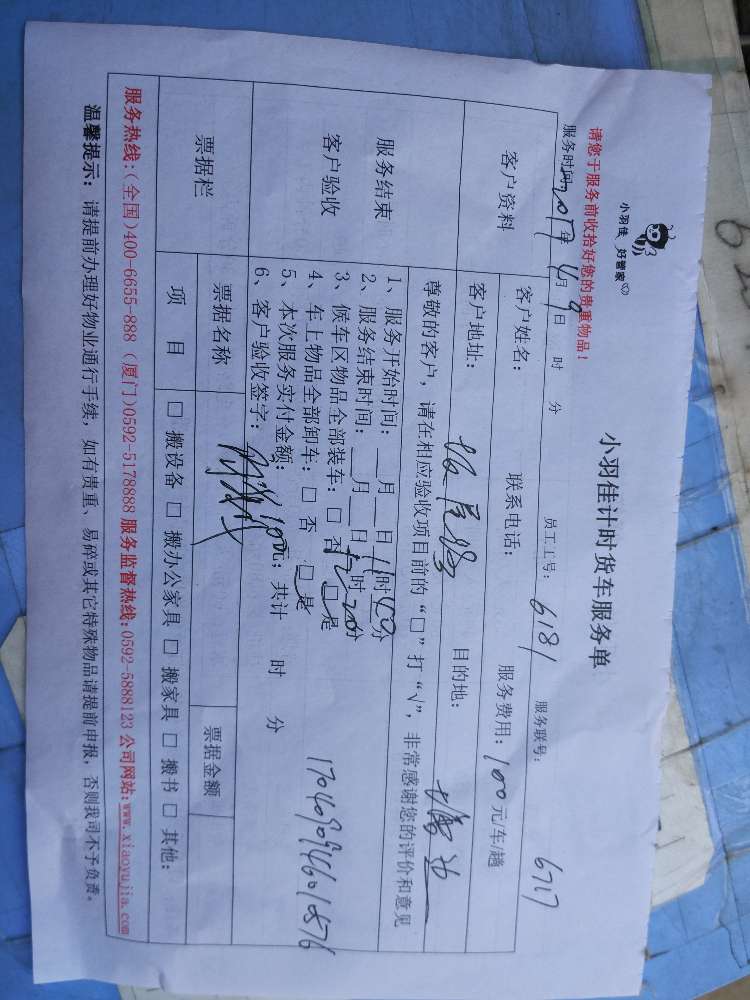 小羽佳 好管家
小羽佳计时货车服务单
请您于服务前收拾好您的贵重物品！
服务时间: 2017年4月9日 时 分 员工工号: 6181 服务联号: 6717
客户资料
客户姓名: 联系电话: 服务费用: 100元/车/趟
客户地址: 目的地:
尊敬的客户，请在相应验收项目前的“□”打“√”，非常感谢您的评价和意见
服务结束
客户验收
1、服务开始时间: __月__日11时40分
2、服务结束时间: __月__日12时20分
3、候车区物品全部装车: □ 否 □ 是
4、车上物品全部卸车: □ 否 □ 是
5、本次服务实付金额: 100元; 共计 时 分
6、客户验收签字:
票据栏
票据名称 票据金额
项 目 □ 搬设备 □ 搬办公家具 □ 搬家具 □ 搬书 □ 其他:
服务热线:(全国)400-6655-888 (厦门)0592-5178888 服务监督热线:0592-5888123 公司网站:www.xiaoyujia.com
温馨提示: 请提前办理好物业通行手续，如有贵重、易碎或其它特殊物品请提前申报，否则我司不予负责。